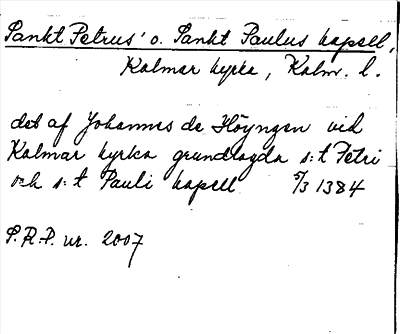 Sankt Petrus' o. Sankt Paulus kapell,
Kalmar kyrka, Kalm. l.
det af Johannes de Höyngen vid
Kalmar kyrka grundlagda s:t Petri
och s:t Pauli kapell 5/3 1384
S.R.P. nr. 2007